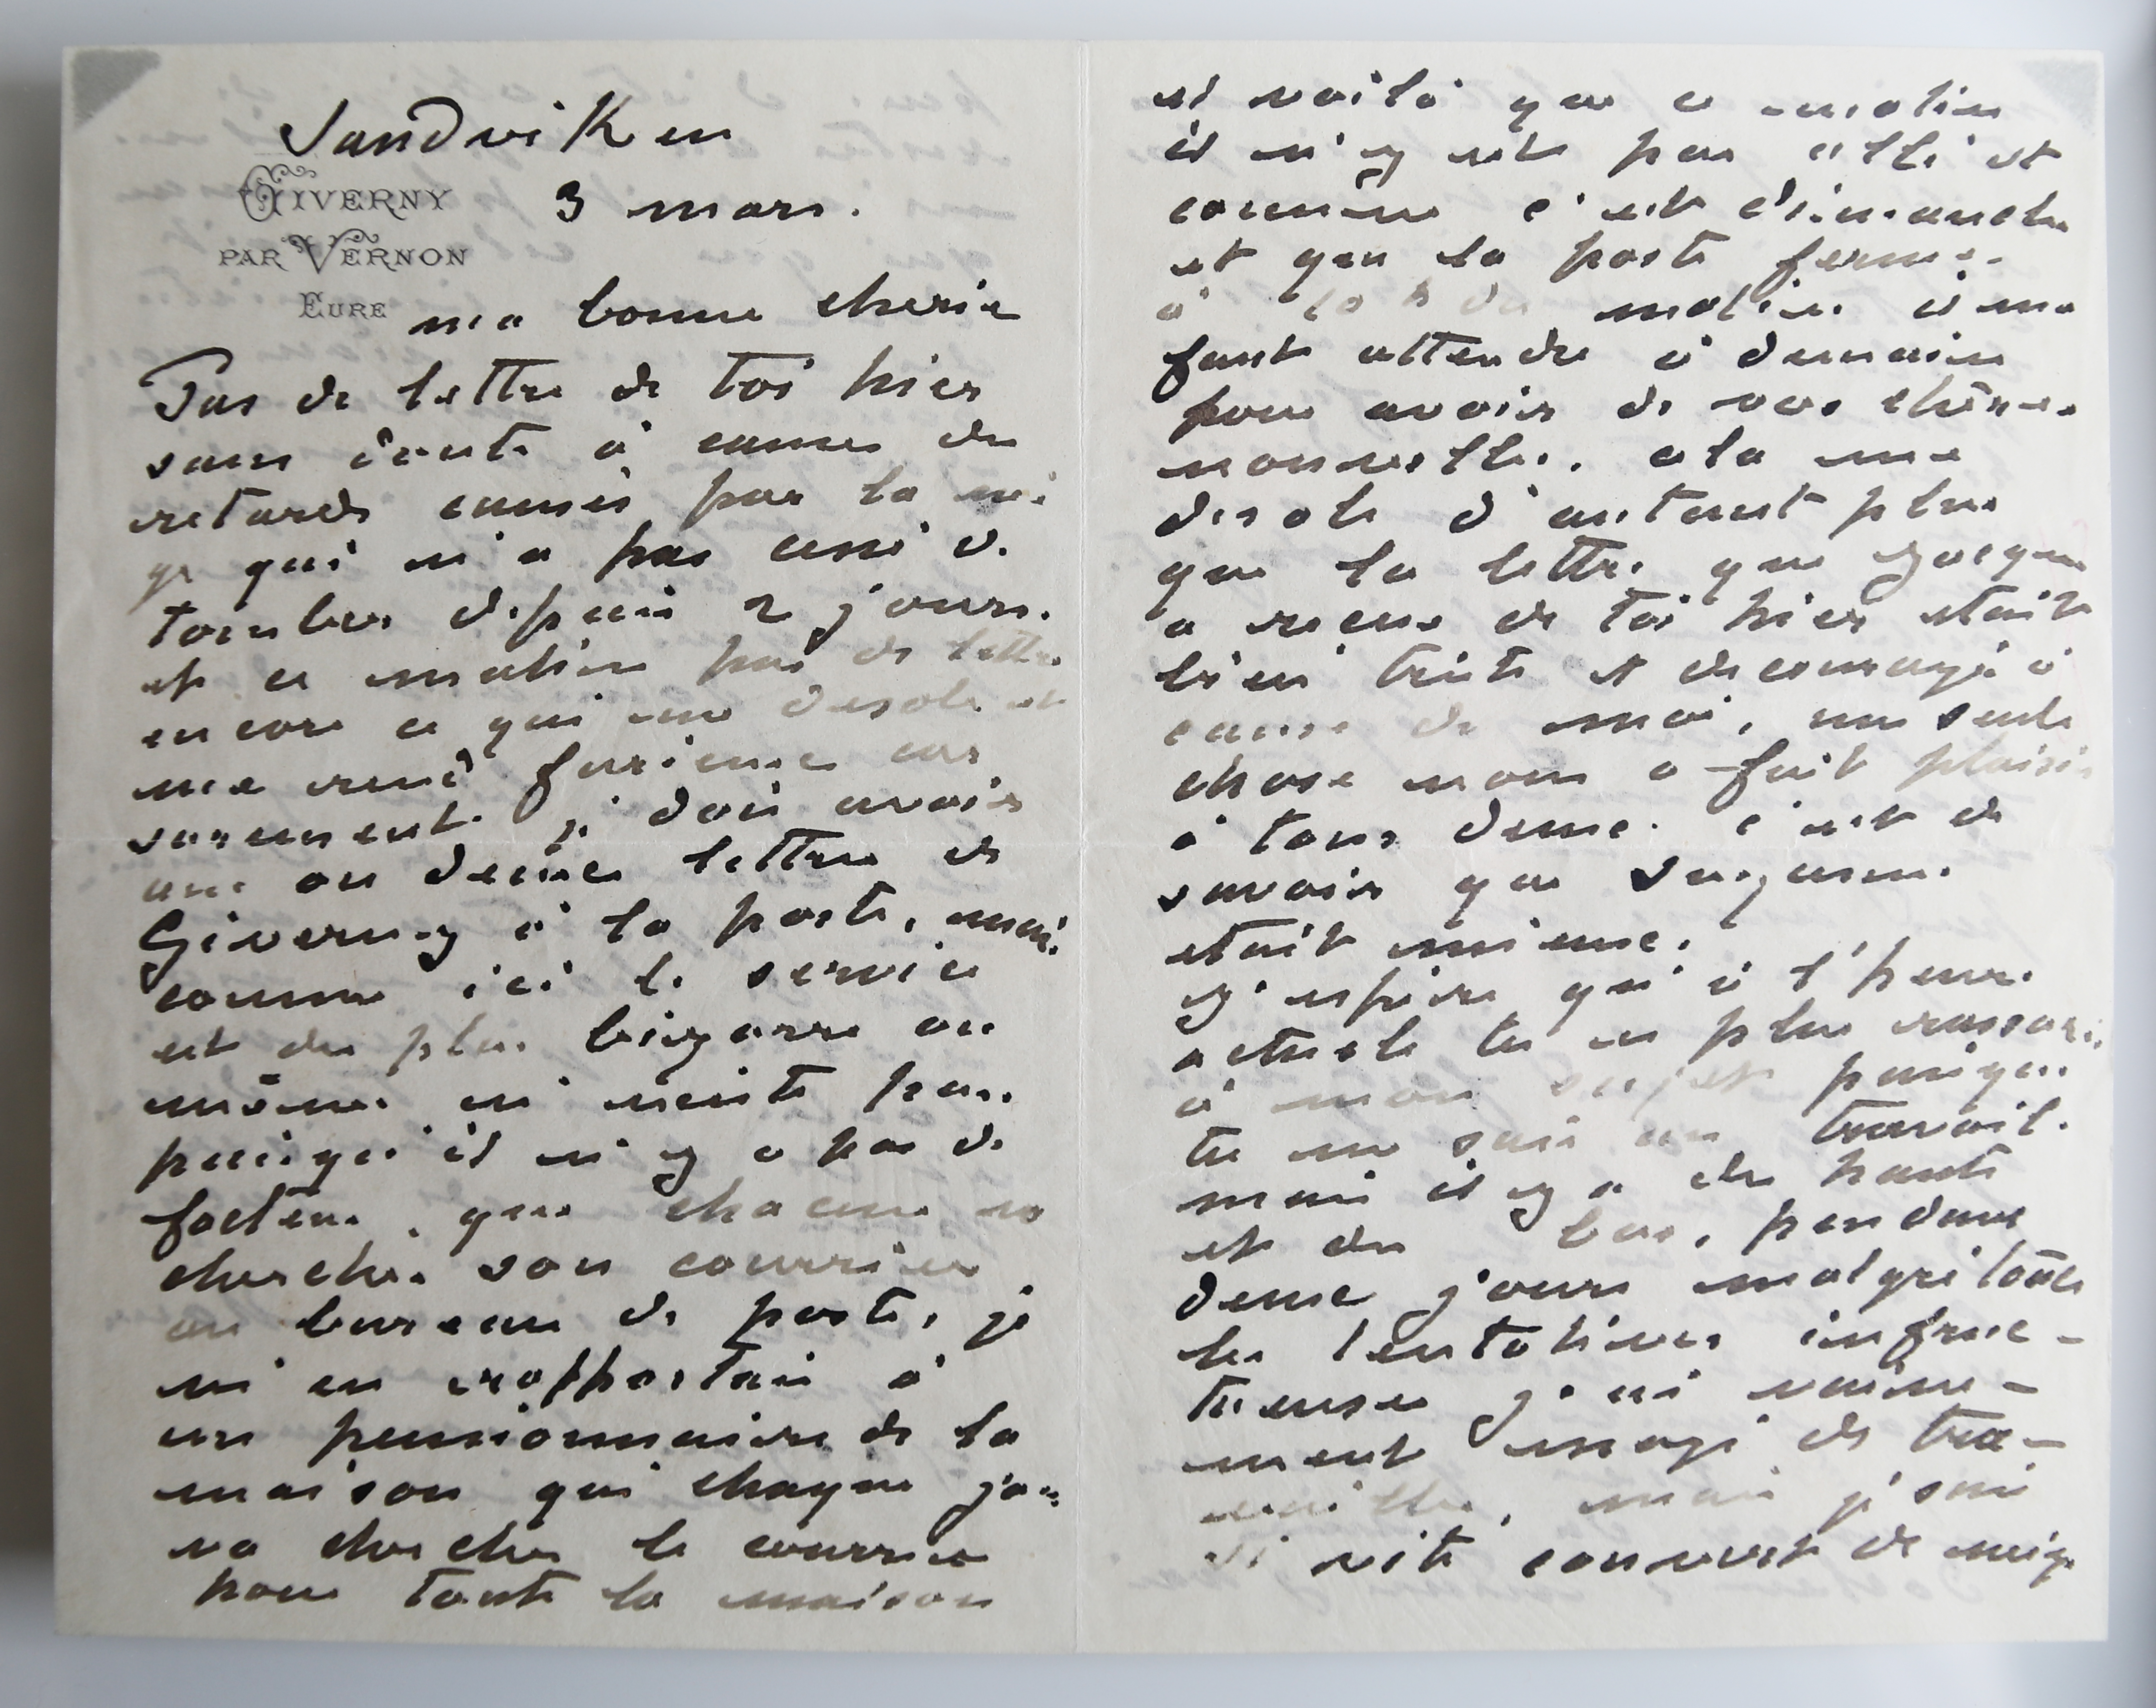 Sandviken
GIVERNY
PAR VERNON
EURE
3 mars.
ma bonne cherie
Pas de lettre de toi hier
sans doute à cause des
retards causés par la nei
ge qui n'a pas cessé de
tomber depuis 2 jours.
et ce matin pas de lettre
encore ce qui me desole et
me rend furieux car
surement je dois avoir
une ou deux lettres de
Giverny à la poste, mais
comme ici le service
est des plus bizarre ou
même n'existe pas
puisqu'il n'y a pas de
facteur, que chacun va
chercher son courrier
au bureau de poste, je
m'en rapportais à
un pensionnaire de la
maison qui chaque jour
va chercher le courrier
pour toute la maison
et voilà que ce matin
il n'y est pas allé et
comme c'est dimanche
et que la poste ferme
à 10 h du matin il me
faut attendre à demain
pour avoir de vos chères
nouvelles. cela me
desole d'autant plus
que la lettre que Jacques
a reçue de toi hier etait
bien triste et decouragée à
cause de moi, une seule
chose nous a fait plaisir
à tous deux. c'est de
savoir que Suzanne
etait mieux.
J'espère qu'à l'heure
actuelle tu es plus rassurée
à mon sujet puisque
tu me sais au travail.
mais il y a des hauts
et des bas, pendant
deux jours malgré toutes
les tentatives infruc-
tueuses j'ai vaine-
ment essayé de tra-
vailler, mais j'etais
si vite couvert de neige